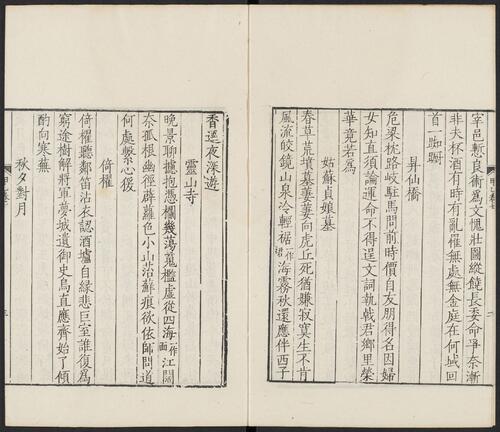 宰邑慙良術為文愧壯圖縱饒長委命爭奈漸
非夫杯酒有時有亂罹無處無金庭在何域回
首一踟蹰
昇仙橋
危梁枕路岐駐馬問前時價自友朋得名因婦
女知直須論運命不得逞文詞執戟君鄉里榮
華竟若為
姑蘇貞娘墓
春草荒墳墓萋萋向虎丘死猶嫌寂寞生不肯
風流皎鏡山泉冷輕裾一作海霧秋還應伴西子
香逕夜深遊
靈山寺
晚景聊攄抱憑欄幾蕩蒐檻虛從四海一作面江闊
奈孤根幽徑薜蘿色小山苔蘚痕欲依師問道
何處繫心猨
倚櫂
倚櫂聽鄰笛沾衣認酒壚自緣悲巨室誰復為
窮途樹解將軍夢城遺御史烏直應齊始了傾
酌向寒蕪
秋夕對月